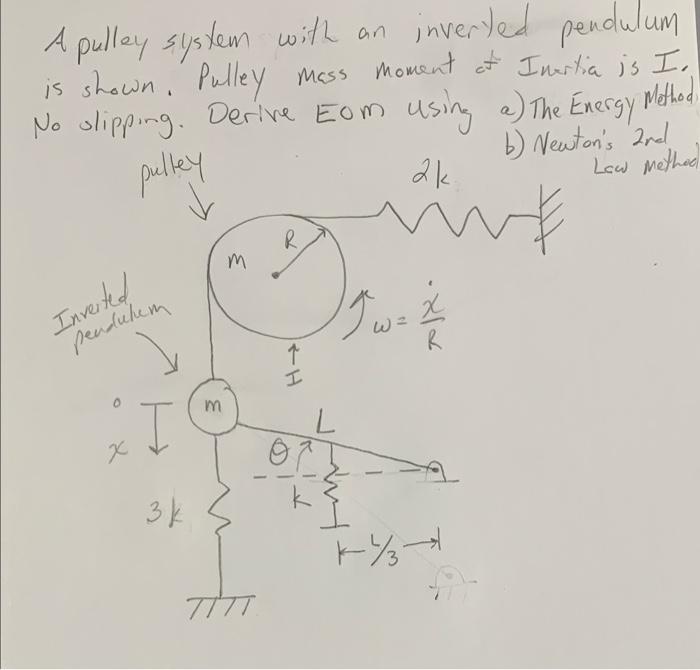 A pulley system with an inverted pendulum
is shown. Pulley mass moment of Inertia is I.
No slipping. Derive EOM using a) The Energy Method
b) Newton's 2nd
Law Method
pulley
2k
R
m
Inverted
pendulum
ω = ẋ/R
I
m
0
x
L
θ
k
3k
L/3